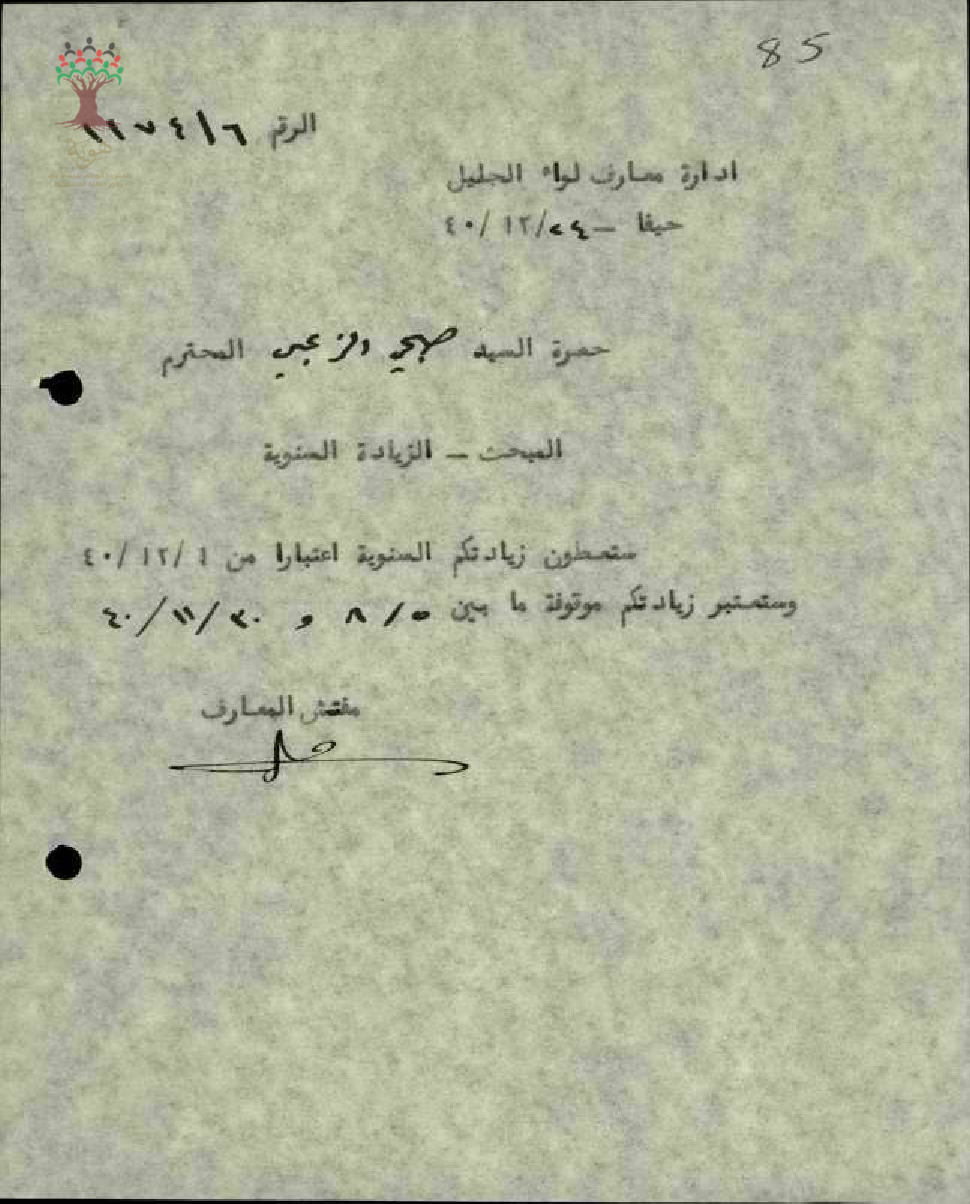 85
الرقم ١١٧٤/٦
ادارة معارف لواء الجليل
حيفا – ٢٤/١٢/٤٠
حضرة السيد صبحي الزعبي المحترم
المبحث – الزيادة السنوية
ستعطون زيادتكم السنوية اعتبارا من ١/١٢/٤٠
وستعتبر زيادتكم موقوفة ما بين ٥/٨ و ٣٠/١١/٤٠
مفتش المعارف